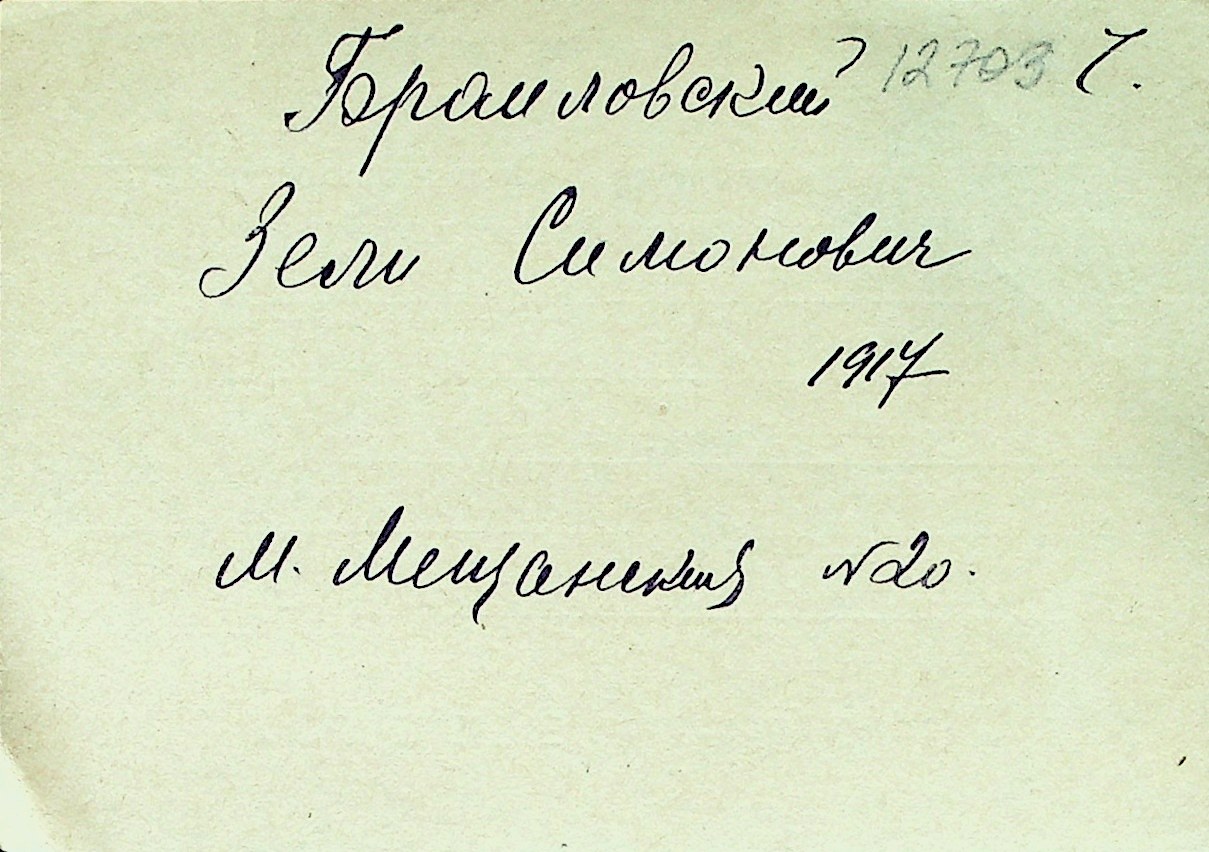 Браиловский 12703 Ч.
Зели Симонович
1917
М. Мещанский №20.